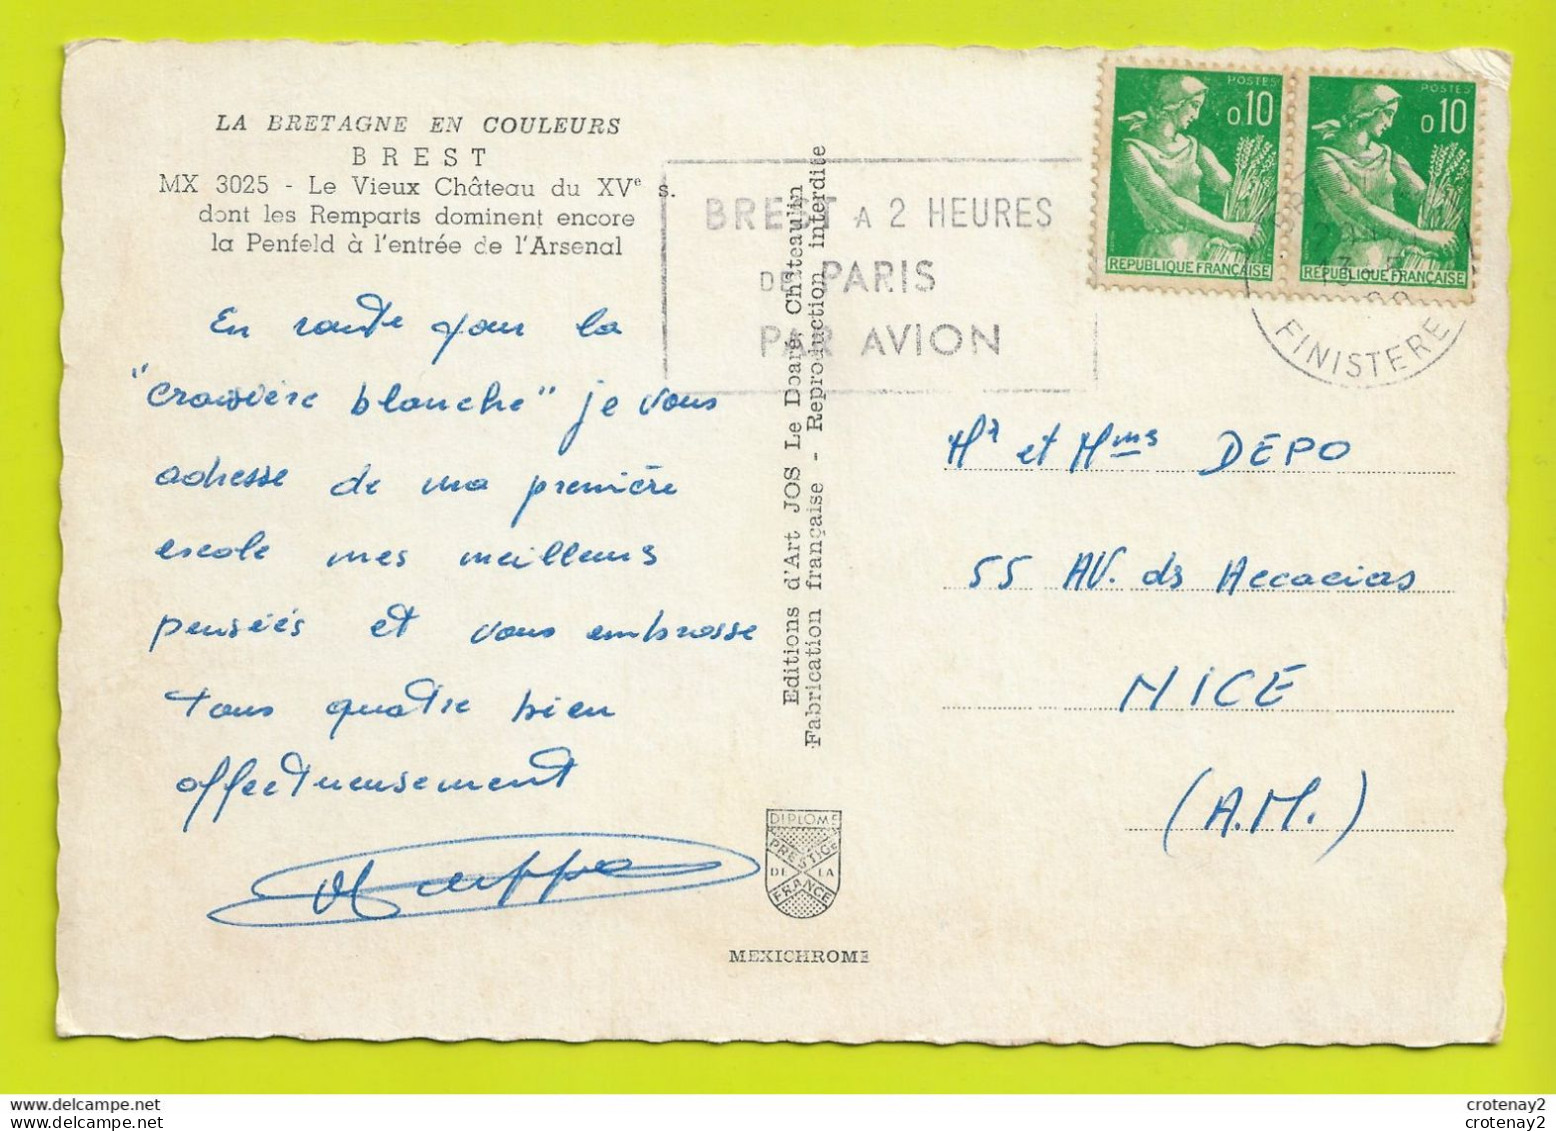 LA BRETAGNE EN COULEURS
BREST
MX 3025 - Le Vieux Château du XVe s.
dont les Remparts dominent encore
la Penfeld à l'entrée de l'Arsenal
En route pour la
"croisière blanche" je vous
adresse de ma première
escale mes meilleurs
pensées et vous embrasse
tous quatre bien
affectueusement
BREST A 2 HEURES
DE PARIS
PAR AVION
Editions d'Art JOS Le Doaré, Châteaulin
Fabrication française - Reproduction interdite
DIPLOME
PRESTIGE
DE LA
FRANCE
MEXICHROME
POSTES
0,10
REPUBLIQUE FRANÇAISE
POSTES
0,10
REPUBLIQUE FRANÇAISE
13-5
FINISTERE
Mr et Mms DEPO
55 AV. ds Accacias
NICE
(A.M.)
crotenay2
crotenay2
crotenay2
crotenay2